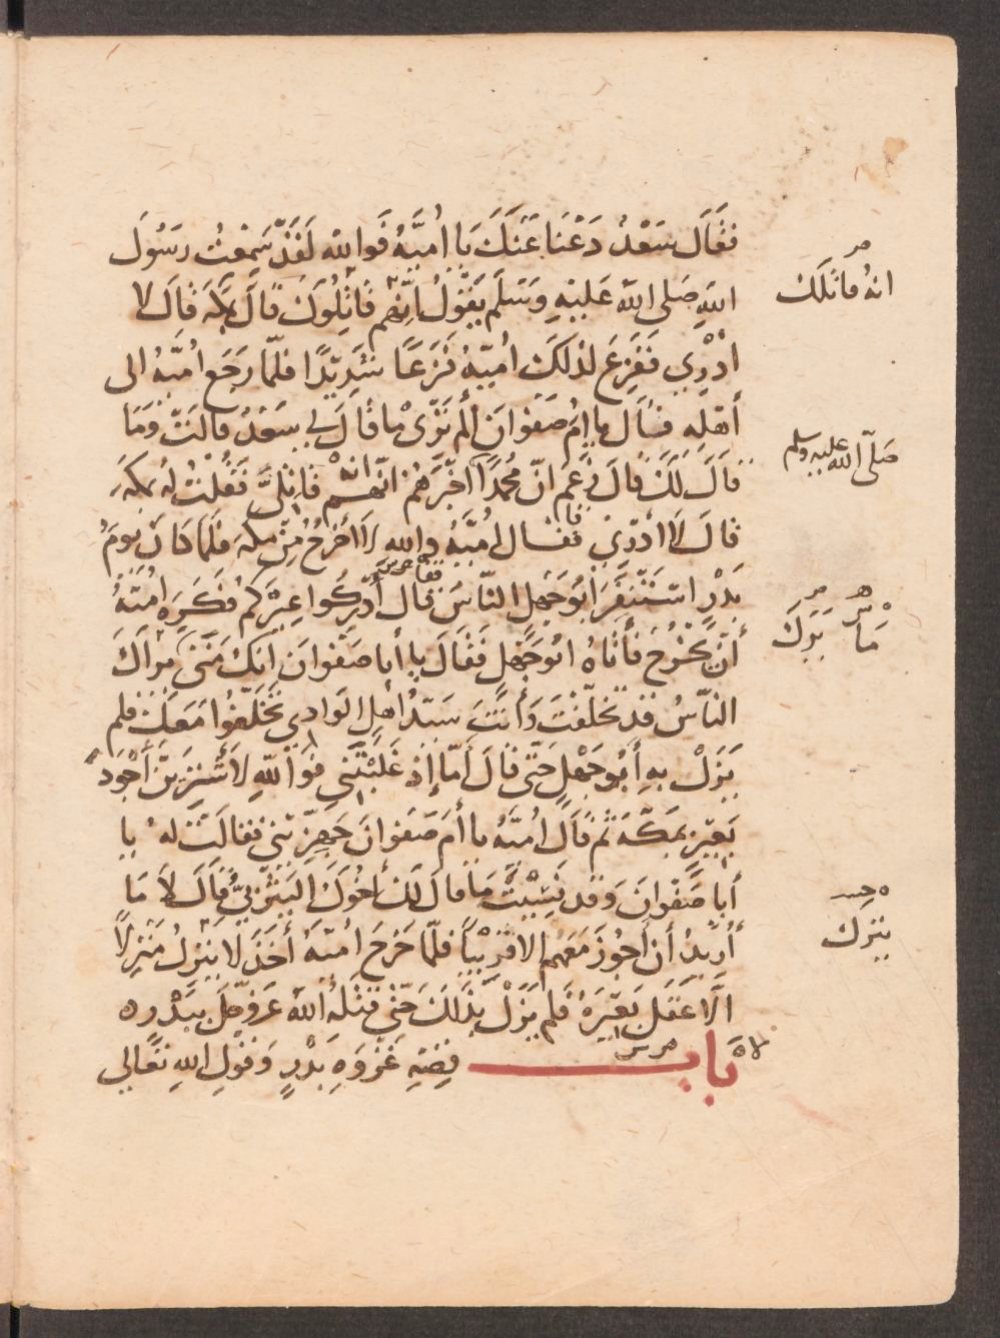 فَقَالَ سَعْدُ دَعْنَا عَنْكَ يَا اُمَيَّةُ فَوَاللهِ لَقَدْ سَمِعْتُ رَسُولَ
اللهِ صَلى اللهُ عَلَيْهِ وَسَلَّمَ يَقُوْلُ اِنَّهُمْ قَاتِلُوكَ قَالَ بمَكَّةَ قَالَ لا
اَدْرِي فَفَزِعَ لِذلكَ اُمَيَّةُ فَزَعًا شَدِيْدًا فلمَّا رَجَعَ اُمَيَّةُ الى
أَهْلِهِ قَالَ يا اُمَّ صَفْوَانَ أَلَمْ تَرَىْ مَا قَالَ لِي سَعْدُ قالَتْ وَمَا
قَالَ لَكَ قَالَ زَعَمَ انّ مُحمَّدًا اَخْبَرَهُمْ انَّهُمْ قَاتِلِيَّ فَقُلْتُ لَهُ بمكةَ
قَالَ لَا اَدْرِي فقال اُمَيَّةُ وَاللهِ لَا اَخْرُجُ مِنْ مَكَّةَ فَلَمَّا كَانَ يَوْمُ
بَدْرٍ اسْتَنْفَرَ اَبُو جَهْلٍ النَّاسَ قَالَ أَدْرِكُوا عِيرَكُمْ فَكَرِهَ اُمَيَّةُ
أَنْ يَخْرُجَ فَأَتَاهُ اَبُو جَهْلٍ فَقَالَ يا أبا صَفْوانَ اِنَّكَ مَتَى يَرَاكَ
النَّاسُ قَدْ تَخَلَّفْتَ وَأَنْتَ سَيِّدُ اَهْلِ الوَادِي تَخَلَّفُوا مَعَكَ فلم
يَزَلْ بِهِ أَبُو جَهْلٍ حَتَّى قَالَ أَمَّا إِذْ غَلَبْتَنِي فَوَاللهِ لَأَشْتَرِيَنَّ أَجْوَدَ
بَعِيْرٍ بِمَكَّةَ ثُمَّ قَالَ اُمَيَّةُ يا أُمَّ صَفْوَانَ جَهِّزِيْنِي فقَالَتْ لهُ يا
أَبا صَفْوَانَ وَقد نَسِيْتَ مَا قَالَ لَكَ أَخُوكَ اليَثْرِبِيُّ قَالَ لَا مَا
أُرِيْدُ أَن أَجُوزَ مَعَهم الا قَرِيْبًا فَلَمَّا خَرَجَ اُمَيَّةُ أَخَذَ لَا يَنْزِلُ مَنْزِلًا
الَّا عَقَلَ بَعِيْرَهُ فَلَمْ يَزَلْ بِذَلكَ حَتَّى قَتَلَهُ اللهُ عَزَّ وَجَلَّ بِبَدْرٍ ه
باب قِصَّةِ غَزْوَةِ بَدْرٍ وَقَوْلِ اللهِ تَعَالى
انهُ قاتلك
صَلّى اللهُ عليهِ وسلم
مَا يَرَكَ
يترك